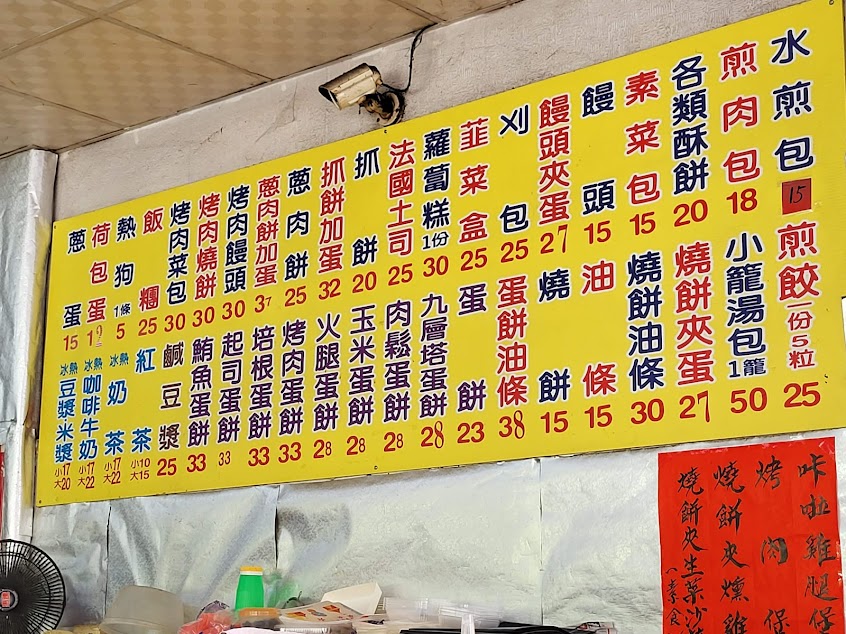 水煎包 15
煎肉包 18
各類酥餅 20
素菜包 15
饅頭 15
饅頭夾蛋 27
刈包 25
韮菜盒 25
蘿蔔糕 1份 30
法國土司 25
抓餅 20
抓餅加蛋 32
蔥肉餅 25
蔥肉餅加蛋 37
烤肉饅頭 30
烤肉燒餅 30
烤肉菜包 30
飯糰 25
熱狗 1條 5
荷包蛋
蔥蛋 15
煎餃 一份5粒 25
小籠湯包 1籠 50
燒餅夾蛋 27
燒餅油條 30
油條 15
燒餅 15
蛋餅油條 38
蛋餅 23
九層塔蛋餅 28
肉鬆蛋餅 28
玉米蛋餅 28
火腿蛋餅 28
烤肉蛋餅 33
培根蛋餅 33
起司蛋餅 33
鮪魚蛋餅 33
鹹豆漿 25
紅茶 小10 大15
冰熱 奶茶 小17 大22
冰熱 咖啡牛奶 小17 大22
冰熱 豆漿米漿 小17 大20
咔啦雞腿保
烤肉保
燒餅夾燻雞
燒餅夾生菜沙
(素食